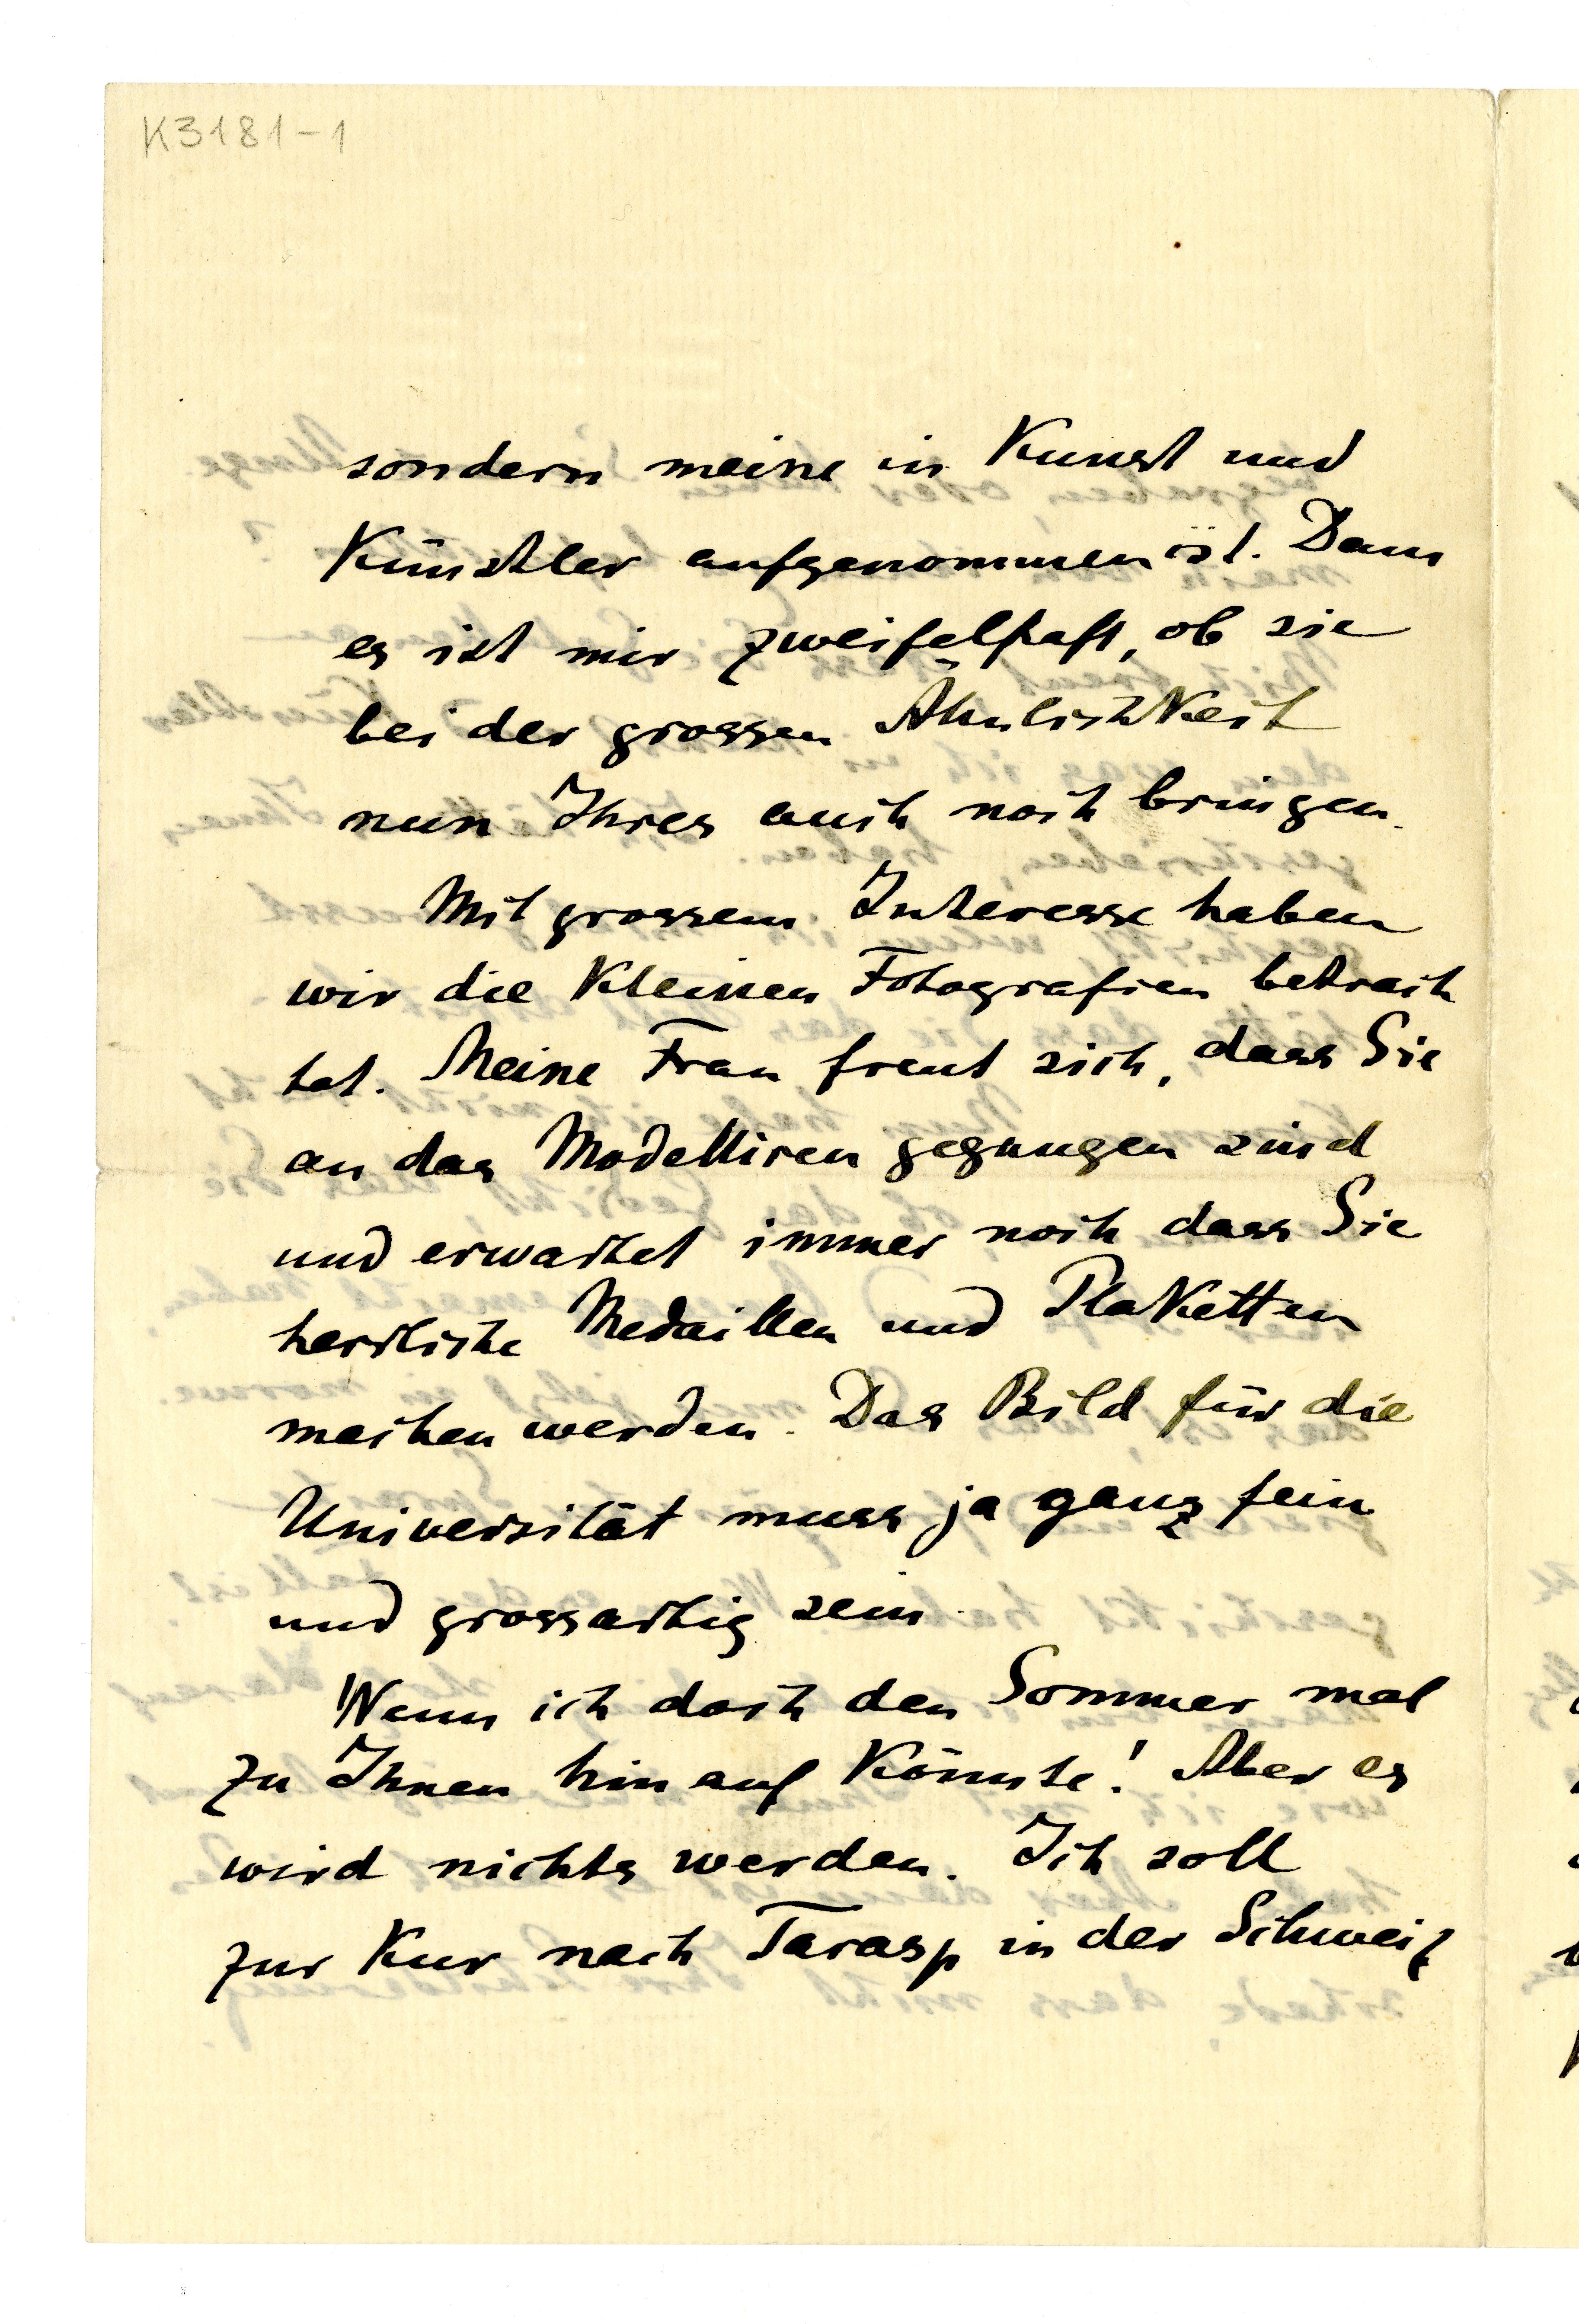 K3181-1
sondern meine in Kunst und
Künstler aufgenommen ist. Dann
es ist mir zweifelhaft, ob sie
bei der grossen Ähnlichkeit
nun Ihres auch noch bringen.
Mit grossem Interesse haben
wir die kleinen Fotografien betrach
tet. Meine Frau freut sich, dass Sie
an das Modelliren gegangen sind
und erwartet immer noch dass Sie
herrliche Medaillen und Plaketten
machen werden. Das Bild für die
Universität muss ja ganz fein
und grossartig sein.
Wenn ich doch den Sommer mal
zu Ihnen hinauf könnte! Aber es
wird nichts werden. Ich soll
zur Kur nach Tarasp in der Schweiz